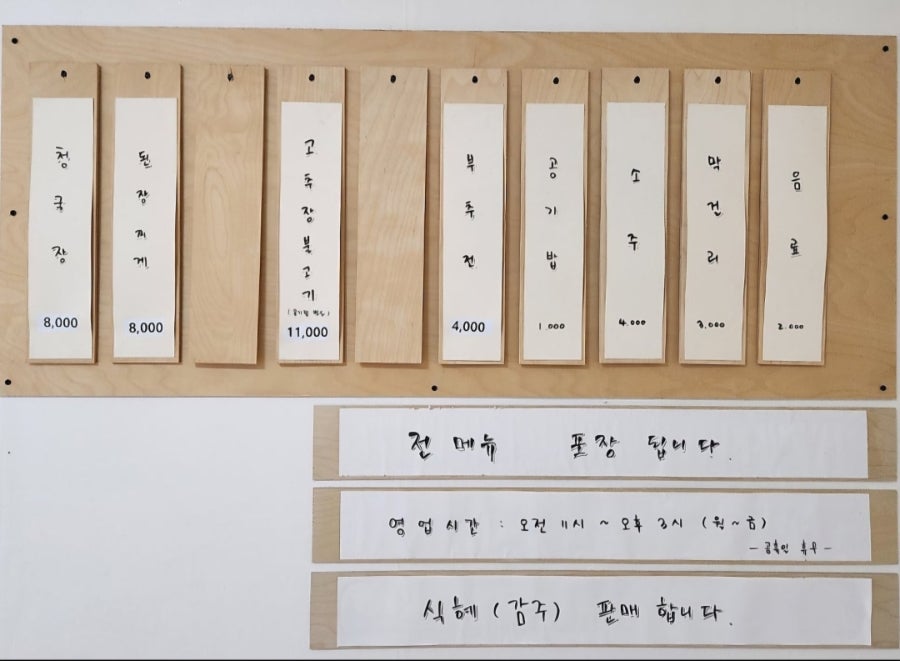 청국장
8,000
된장찌게
8,000
고추장불고기
11,000
부추전
4,000
공기밥
1.000
소주
4.000
막걸리
3.000
음료
2.000
전메뉴 포장 됩니다.
영업시간 : 오전 11시 ~ 오후 3시 (월~금)
- 공휴일 휴무 -
식혜(감주) 판매 합니다.